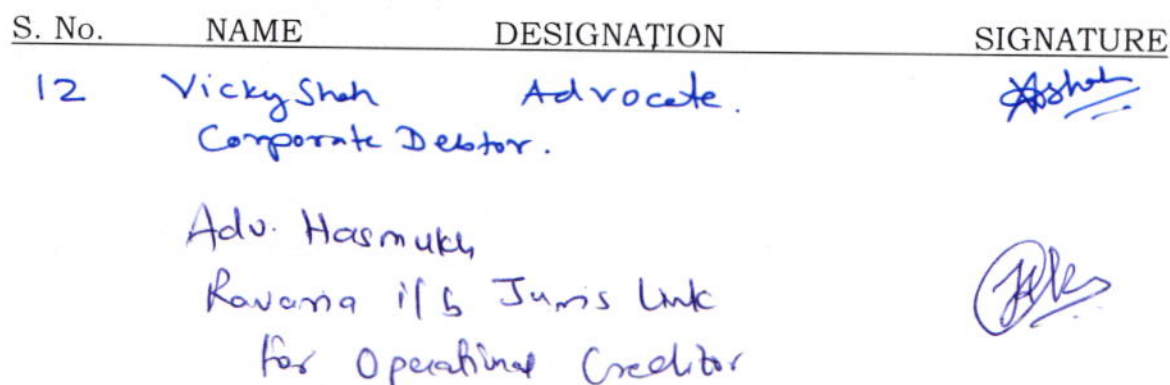 S. No. NAME DESIGNATION SIGNATURE
12 Vicky Shah Advocate.
Corporate Debtor.
Adv. Hasmukh
Ravaria i/b Juris Link
for Operational Creditor